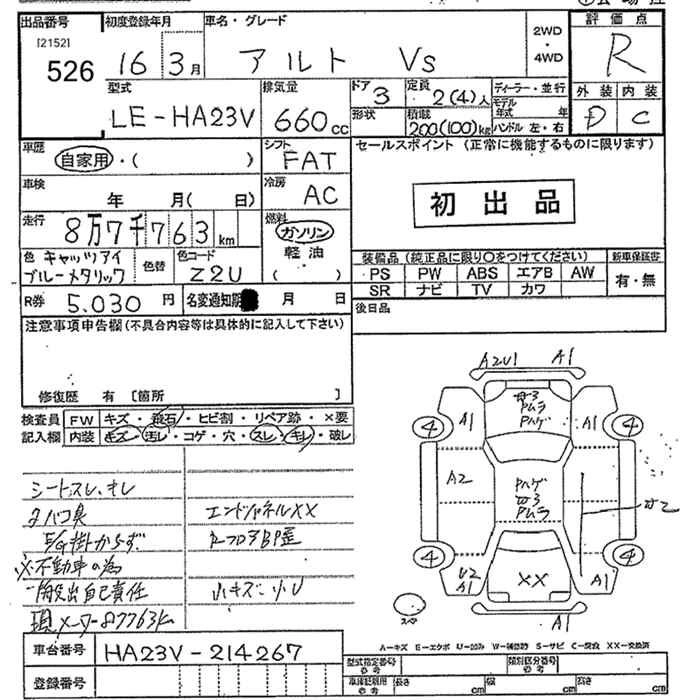 出品番号 初度登録年月 車名・グレード 2WD・4WD 評価点
[2152]
526 16 3月 アルト Vs R
型式 排気量 ドア 定員 ディーラー・並行 外装 内装
LE-HA23V 660cc 3 2(4)人 モデル年式 年 D C
形状 積載 200(100)kg ハンドル 左・右
車歴 自家用・( ) シフト FAT セールスポイント (正常に機能するものに限ります)
車検 年 月( 日) 冷房 AC
初出品
走行 8万7千763km 燃料 ガソリン
軽油
( )
色 キャッツアイブルーメタリック 色替 色コード Z2U
装備品 (純正品に限り○をつけてください) 新車保証書
PS PW ABS エアB AW 有・無
SR ナビ TV カワ
R券 5.030円 名変通知期 月 日 後日品
注意事項申告欄 (不具合内容等は具体的に記入して下さい)
修復歴 有 [箇所 ]
検査員記入欄 FW キズ・飛石・ヒビ割・リペア跡・×要
内装 キズ・汚レ・コゲ・穴・スレ・キレ・破レ
シートスレ、キレ
タバコ臭 エンドパネルXX
E/G掛からず
※不動車の為
搬出自己責任 小キズ 小U
現メーター87763km
A2U1 A1
A1 A1
4 4
A2
PムラPハゲ
Pハゲ
Pムラ
4 4
U2
A1 XX A1
A1
A-キズ E-エクボ U-凹み W-補修跡 S-サビ C-腐食 XX-交換済
車台番号 HA23V-214267
登録番号
型式指定番号 類別区分番号
長さ cm 幅 cm 高さ cm